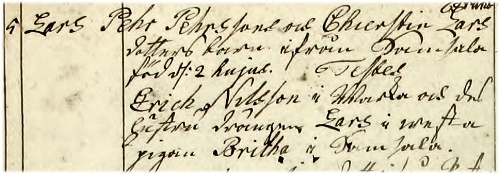 5 Lars Pehr Pehrssons och Chierstin Lars
dotters barn ifrån Damsala
född d: 2 hujus. Testes
Erich Nilsson i Marka och des
hustru drängen Lars i westa
pigan Britha i Damsala.